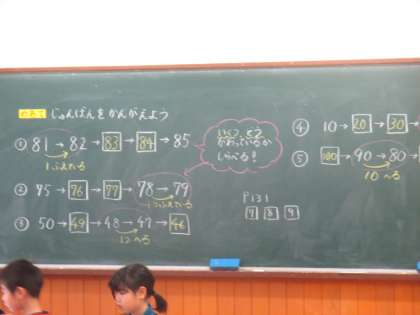 めあて じゅんばんをかんがえよう
① 81 → 82 → 83 → 84 → 85
1ふえている
いくつ ずつ
かわっているか
しらべる!
② 75 → 76 → 77 → 78 → 79
1ふえている
③ 50 → 49 → 48 → 47 → 46
1へる
④ 10 → 20 → 30 →
⑤ 100 → 90 → 80 →
10へる
P131
7 8 9